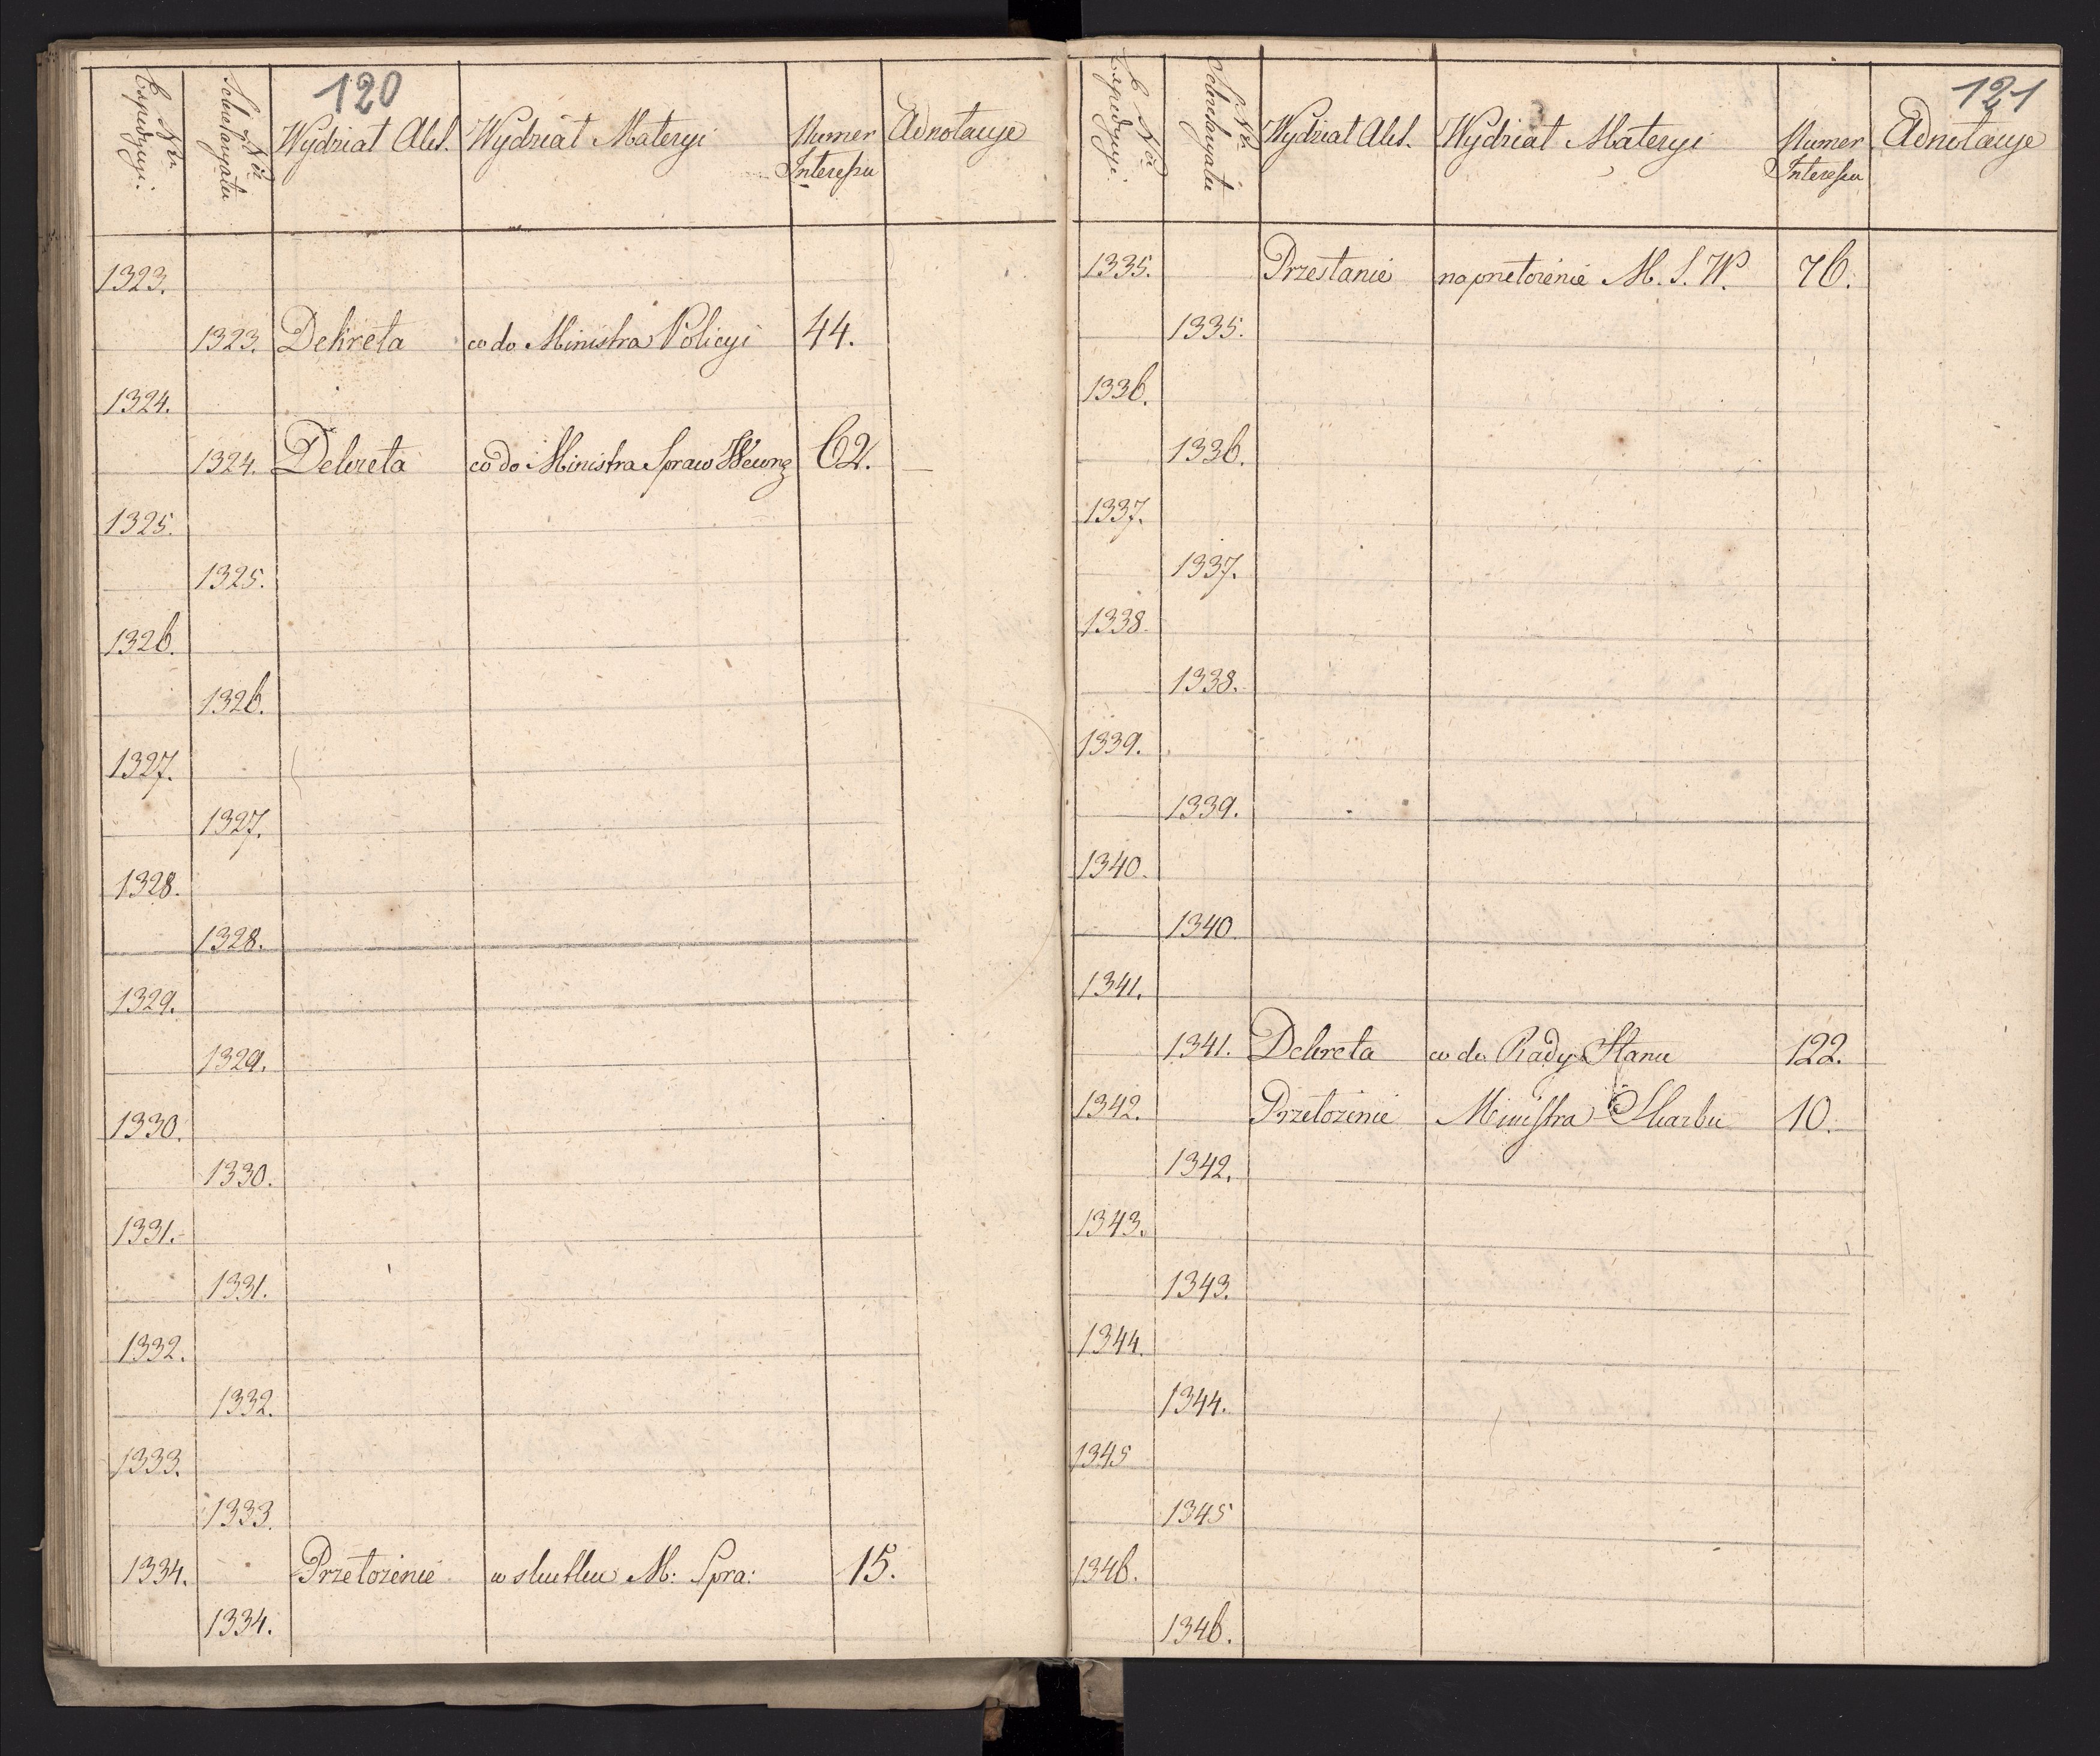 120
Nr Expedycyi.
Nr Sekretaryatu
Wydział Akt.
Wydział Materyi
Numer Interessu
Adnotacye
1323.
1323. Dekreta co do Ministra Policyi 44.
1324.
1324. Dekreta co do Ministra Spraw Wewnę 62.
1325.
1325.
1326.
1326.
1327.
1327.
1328.
1328.
1329.
1329.
1330.
1330.
1331.
1331.
1332.
1332.
1333.
1333.
1334. Przełożenie w skutku M: Spra: 15.
1334.
121
Nr Expedycyi.
Nr Sekretaryatu
Wydział Akt.
Wydział Materyi
Numer Interessu
Adnotacye
1335. Przesłanie na przełożenie M. S. W. 76.
1335.
1336.
1336.
1337.
1337.
1338.
1338.
1339.
1339.
1340.
1340
1341.
1341. Dekreta co do Rady Stanu 122.
1342. Przełożenie Ministra Skarbu 10.
1342.
1343.
1343.
1344.
1344.
1345
1345
1346.
1346.